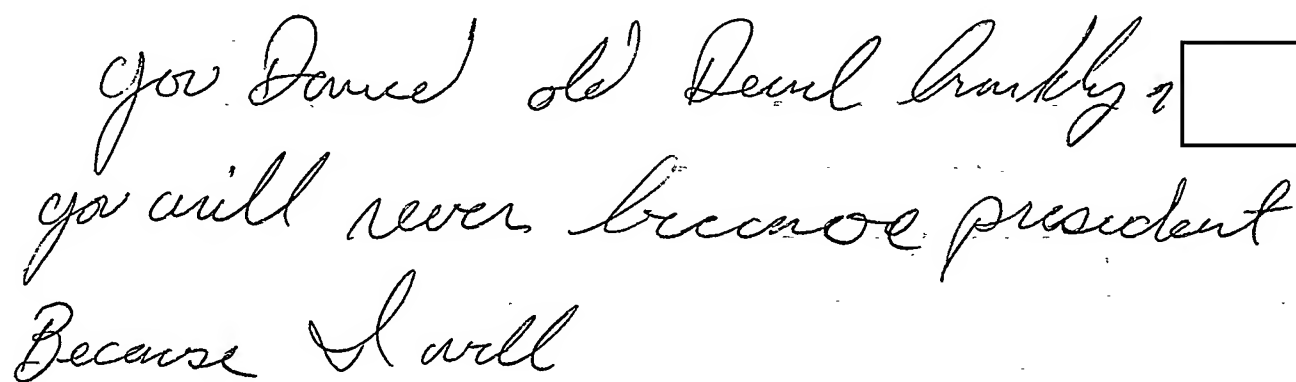 you old Devil
you will never become president
Because I will